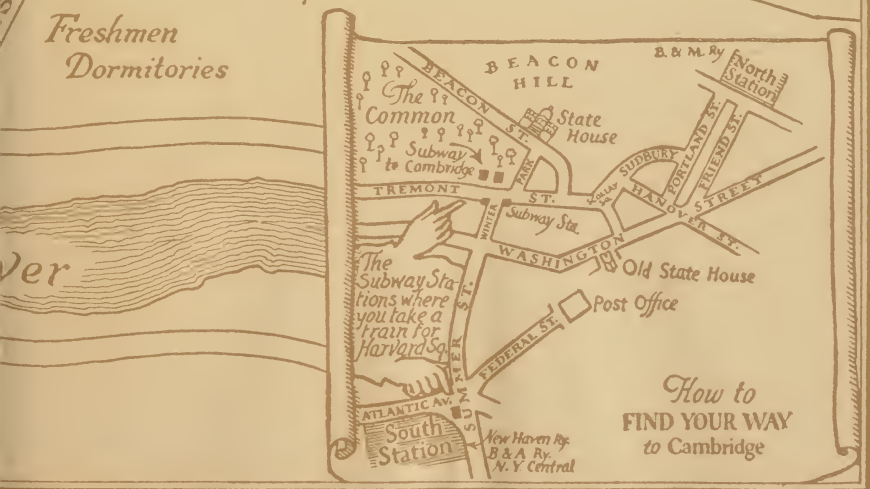 Freshmen
Dormitories
ver
BEACON
HILL
B. & M. Ry
North
Station
The
Common
BEACON ST.
State
House
Subway
to Cambridge
PARK
TREMONT ST.
WINTER
Subway Sta.
SUDBURY
PORTLAND ST.
FRIEND ST.
HANOVER ST.
WASHINGTON STREET
Old State House
Post Office
The
Subway Sta-
tions where
you take a
train for
Harvard Sq.
SUMMER ST.
FEDERAL ST.
ATLANTIC AV.
South
Station
New Haven Ry.
B & A Ry.
N.Y Central
How to
FIND YOUR WAY
to Cambridge